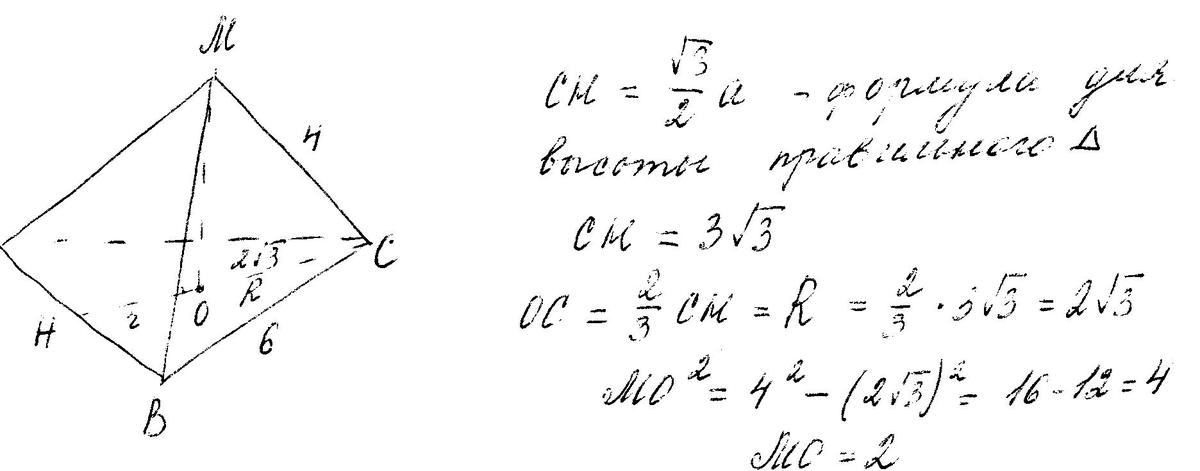 M
4
2√3
R
C
H
r
O
6
B
CH = √3/2 a - формула для
высоты правильного Δ
CH = 3√3
OC = 2/3 CH = R = 2/3 · 3√3 = 2√3
MO² = 4² - (2√3)² = 16 - 12 = 4
MO = 2